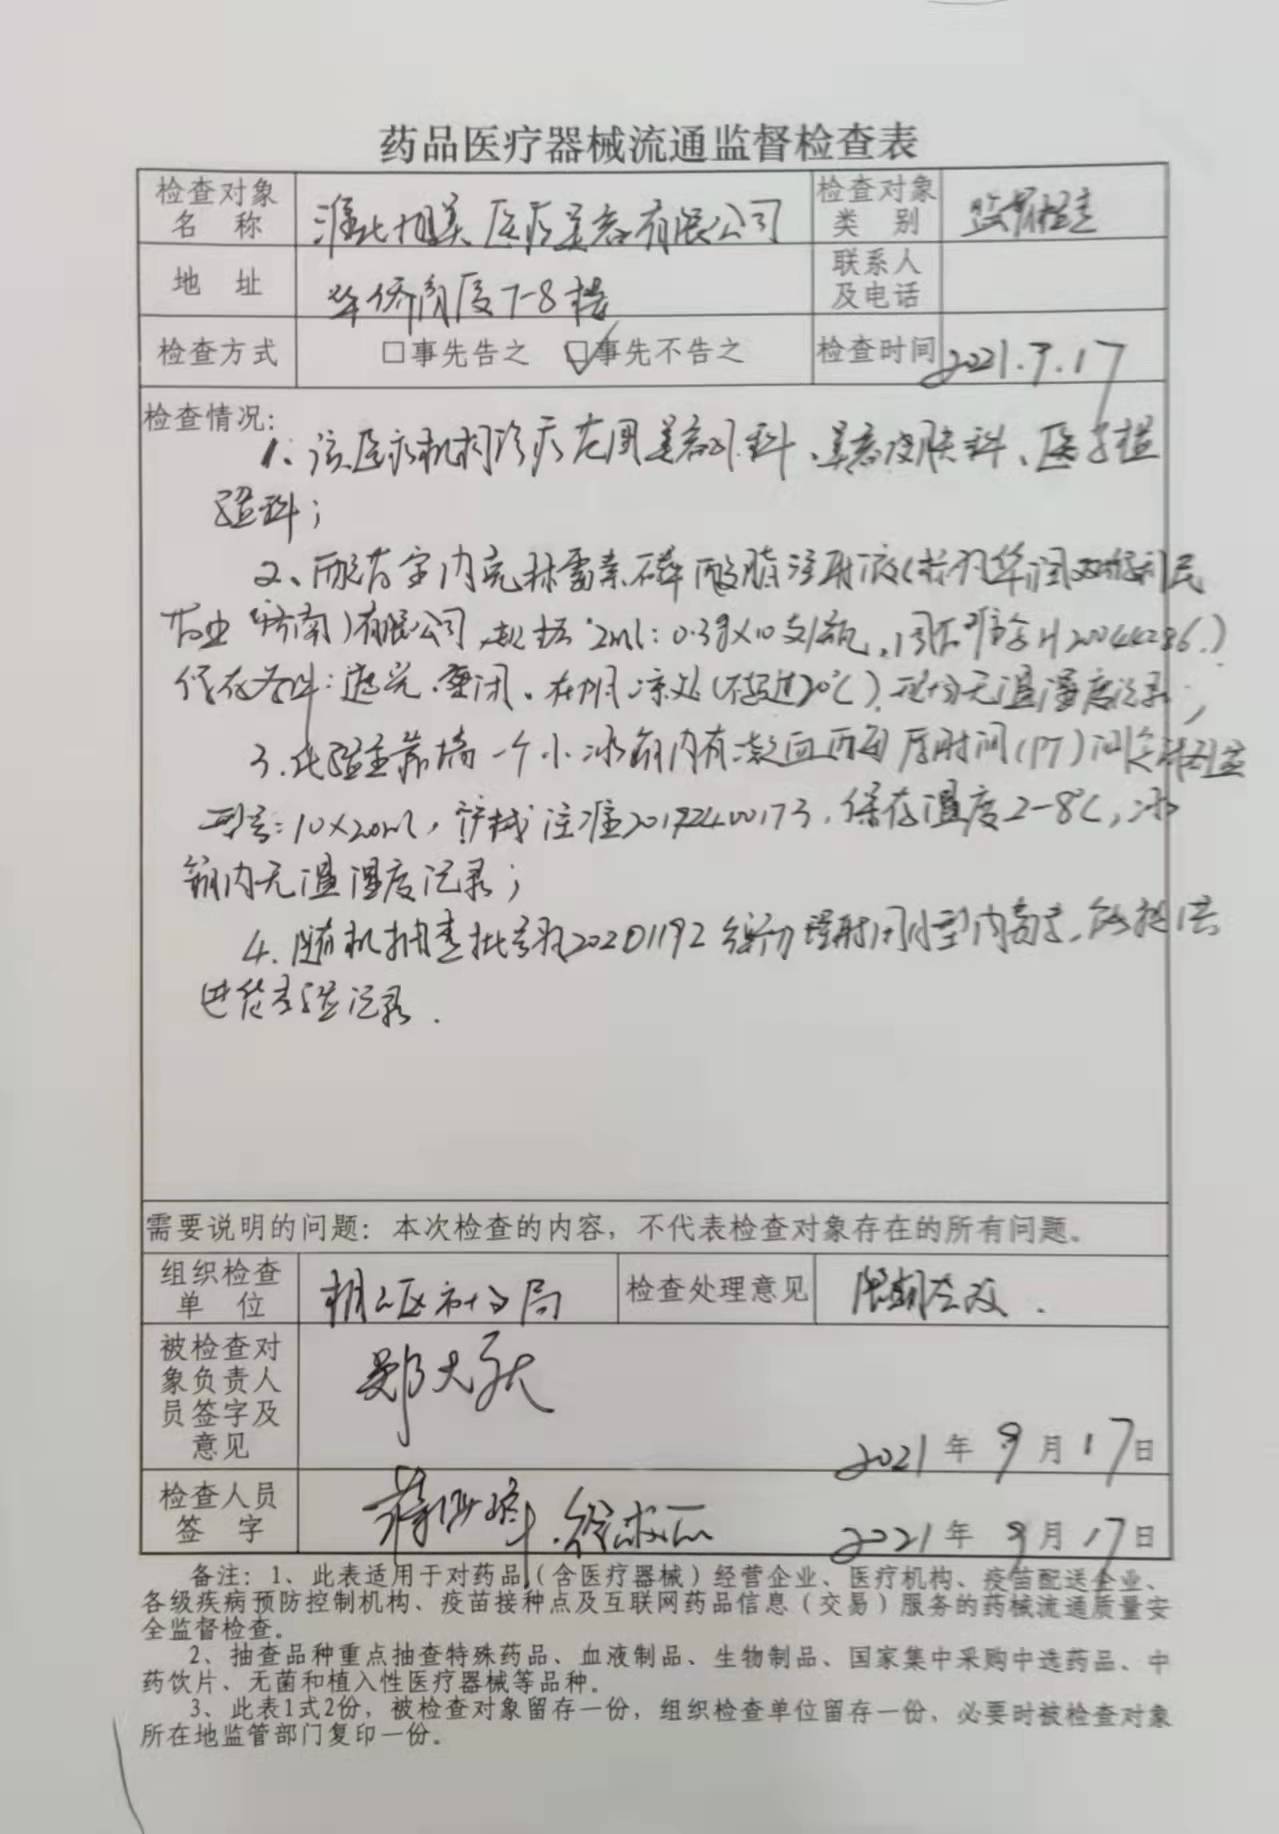 药品医疗器械流通监督检查表
检查对象名 称 淮北旭美医疗美容有限公司 检查对象类 别 监督检查
地 址 华侨商厦7-8楼 联系人及电话
检查方式 □事先告之 ☑事先不告之 检查时间 2021.9.17
检查情况:
1、该医疗机构诊疗范围美容外科、美容皮肤科、医学检
验科;
2、 药房内克林霉素磷酸酯注射液(标为华润双鹤利民
药业(济南)有限公司, 2ml:0.3g×10支/瓶, 国药准字H20044286.)
保存条件:遮光、密闭、在阴凉处(不超过20℃),现场无温湿度记录;
3.化验室靠墙一个小冰箱内有凝血酶原时间(PT)
型号:10×20ml, 械注准20172400173,保存温度2-8℃,冰
箱内无温湿度记录;
4.随机抽查批号为20201192 , 能提供
进货查验记录.
需要说明的问题:本次检查的内容,不代表检查对象存在的所有问题。
组织检查单 位 相山区市场局 检查处理意见 限期整改.
被检查对
象负责人
员签字及
意见
郑大
2021年9月17日
检查人员签 字
2021年9月17日
备注:1、此表适用于对药品(含医疗器械)经营企业、医疗机构、疫苗配送企业、
各级疾病预防控制机构、疫苗接种点及互联网药品信息(交易)服务的药械流通质量安
全监督检查。
2、抽查品种重点抽查特殊药品、血液制品、生物制品、国家集中采购中选药品、中
药饮片、无菌和植入性医疗器械等品种。
3、此表1式2份,被检查对象留存一份,组织检查单位留存一份,必要时被检查对象
所在地监管部门复印一份。